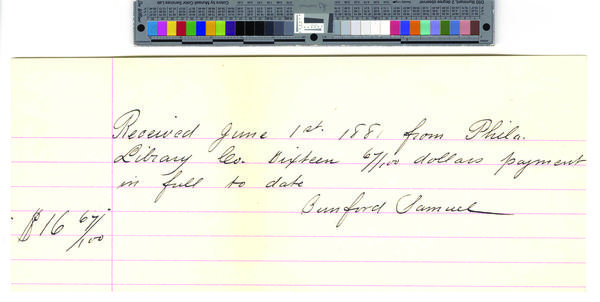 Received June 1st. 1881 from Phila.
Library Co. Sixteen 67/100 dollars payment
in full to date
Bunford Samuel
$16 67/100